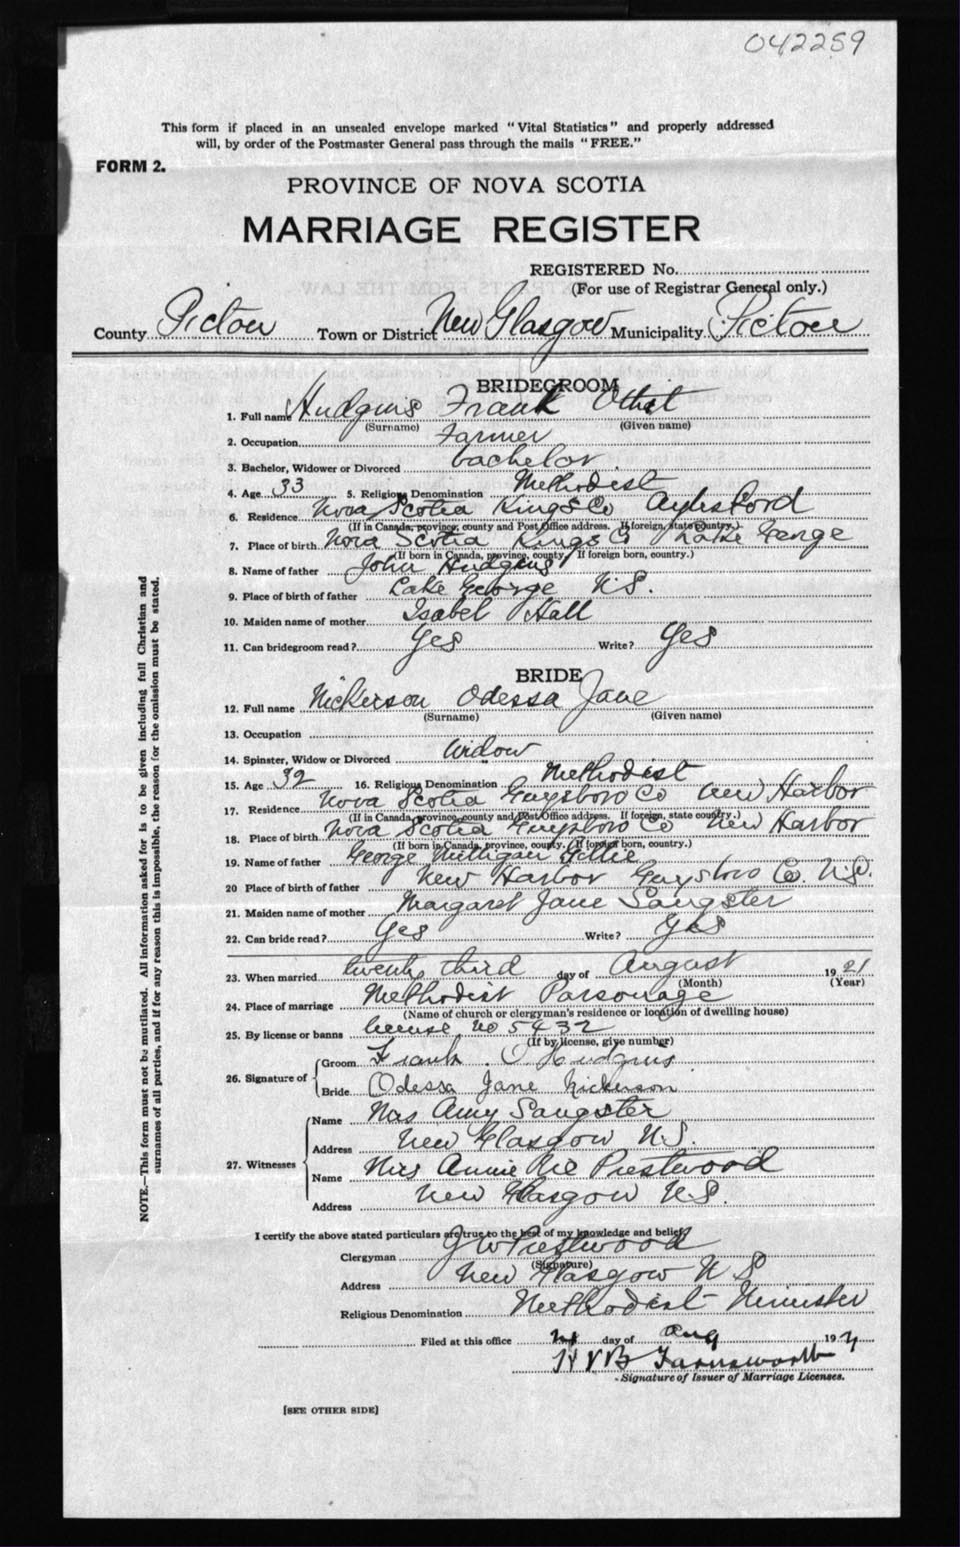 042259
This form if placed in an unsealed envelope marked "Vital Statistics" and properly addressed
will, by order of the Postmaster General pass through the mails "FREE."
FORM 2.
PROVINCE OF NOVA SCOTIA
MARRIAGE REGISTER
REGISTERED No.
(For use of Registrar General only.)
County Pictou Town or District New Glasgow Municipality Pictou
BRIDEGROOM
1. Full name Hudgins Frank
(Surname) (Given name)
2. Occupation Farmer
3. Bachelor, Widower or Divorced bachelor
4. Age 33 5. Religious Denomination Methodist
6. Residence Nova Scotia Kings Co Aylesford
(If in Canada, province, county and Post Office address. If foreign, state country.)
7. Place of birth Nova Scotia Kings Co Lake George
(If born in Canada, province, county. If foreign born, country.)
8. Name of father John Hudgins
9. Place of birth of father Lake George N.S.
10. Maiden name of mother Isabel Hall
11. Can bridegroom read? Yes Write? Yes
BRIDE
12. Full name Nickerson Odessa Jane
(Surname) (Given name)
13. Occupation
14. Spinster, Widow or Divorced Widow
15. Age 32 16. Religious Denomination Methodist
17. Residence Nova Scotia Guysboro Co New Harbor
(If in Canada, province, county and Post Office address. If foreign, state country.)
18. Place of birth Nova Scotia Guysboro Co New Harbor
(If born in Canada, province, county. If foreign born, country.)
19. Name of father George Milligan
20 Place of birth of father New Harbor Guysboro Co. N.S.
21. Maiden name of mother Margaret Jane Sangster
22. Can bride read? Yes Write? Yes
23. When married twenty third day of August 1921
(Month) (Year)
24. Place of marriage Methodist Parsonage
(Name of church or clergyman's residence or location of dwelling house)
25. By license or banns license no 5432
(If by license, give number)
26. Signature of Groom Frank O Hudgins
Bride Odessa Jane Nickerson
27. Witnesses Name Mrs Amy Sangster
Address New Glasgow N.S.
Name Mrs Annie Prestwood
Address New Glasgow N.S.
I certify the above stated particulars are true to the best of my knowledge and belief.
Clergyman J W Prestwood
(Signature)
Address New Glasgow N S
Religious Denomination Methodist Minister
Filed at this office day of Aug 192
Farnsworth
Signature of Issuer of Marriage Licenses.
[SEE OTHER SIDE]
NOTE.—This form must not be mutilated. All information asked for is to be given including full Christian and
surnames of all parties, and if for any reason this is impossible, the reason for the omission must be stated.